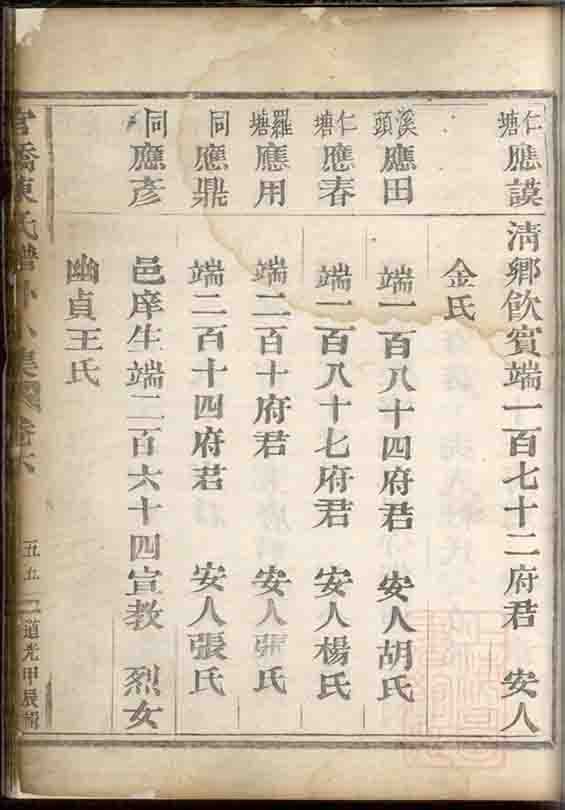 仁塘 應謨 清鄉飲賓端一百七十二府君 安人
金氏
溪頭 應田 端一百八十四府君 安人胡氏
仁塘 應春 端一百八十七府君 安人楊氏
羅塘 應用 端二百十府君 安人張氏
同 應鼎 端二百十四府君 安人張氏
同 應彥 邑庠生端二百六十四宣教 烈女
幽貞王氏
官橋東氏譜外 集 卷六 五五 道光甲辰輯